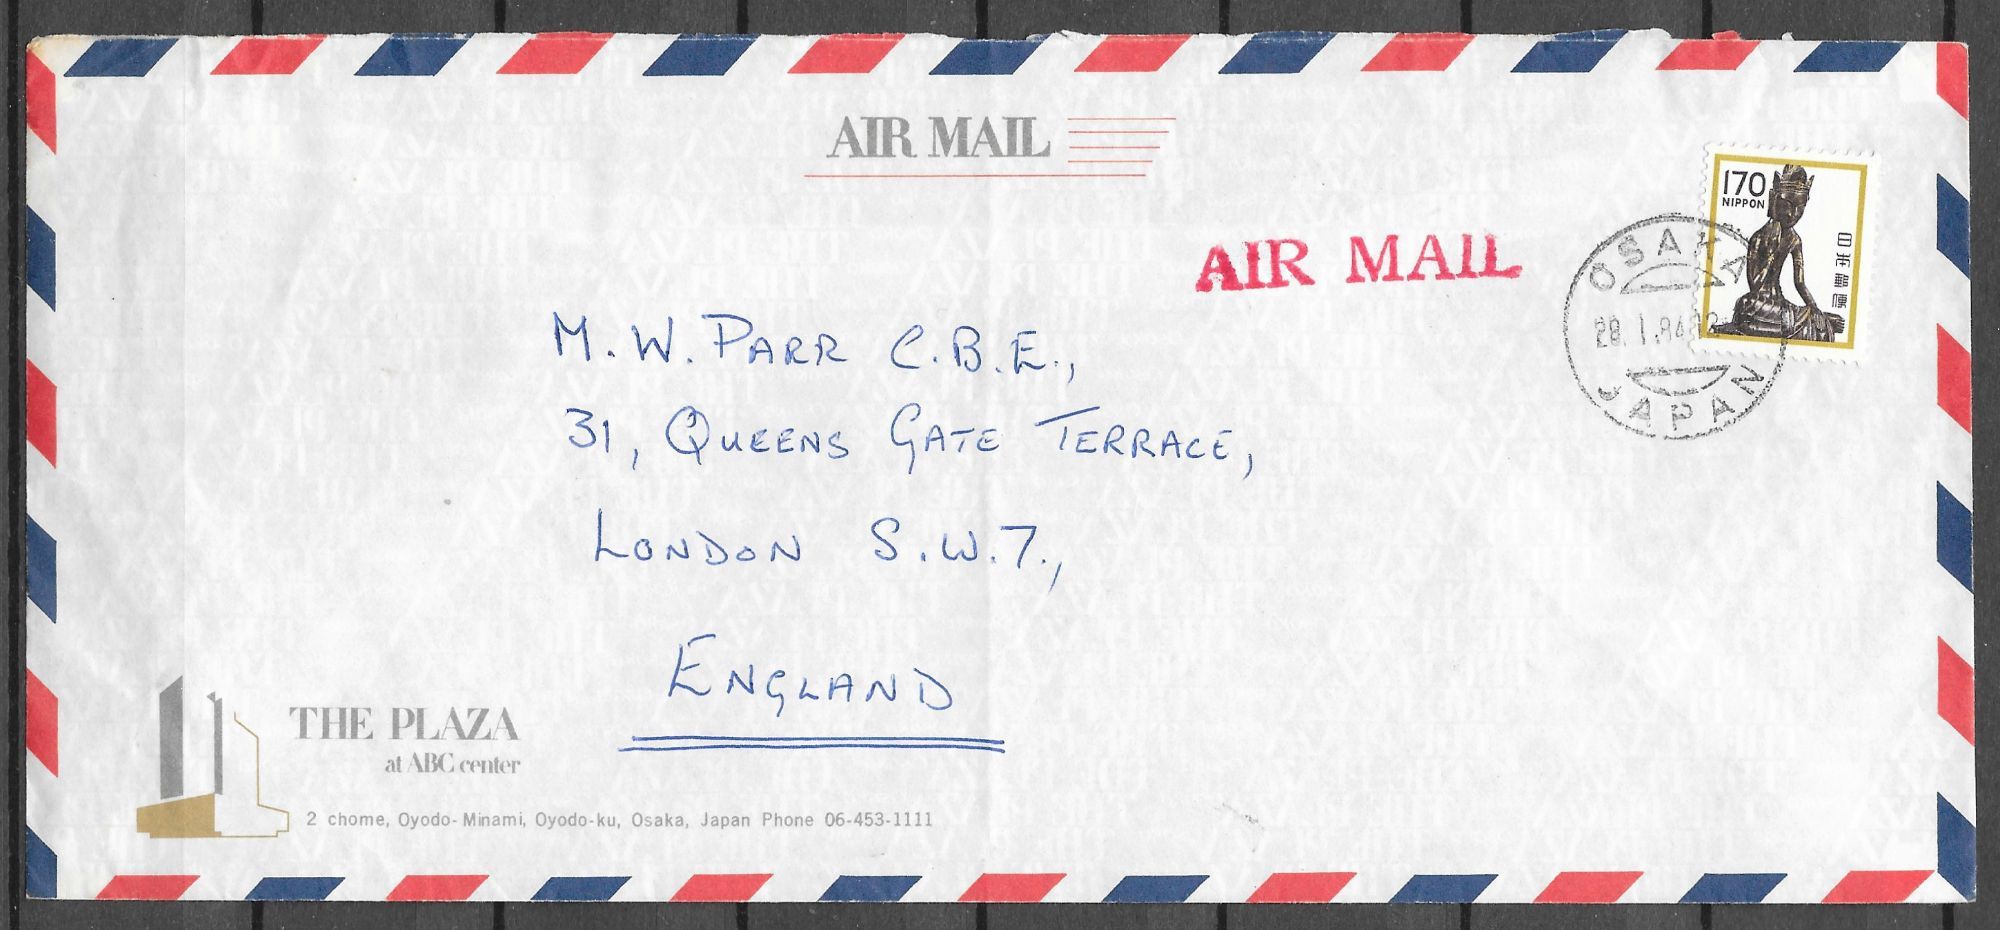 AIR MAIL
170
NIPPON
日本郵便
AIR MAIL
OSAKA
28.I.84
JAPAN
M. W. PARR C.B.E.,
31, QUEENS GATE TERRACE,
LONDON S.W.7.,
ENGLAND
THE PLAZA
at ABC center
2 chome, Oyodo-Minami, Oyodo-ku, Osaka, Japan Phone 06-453-1111